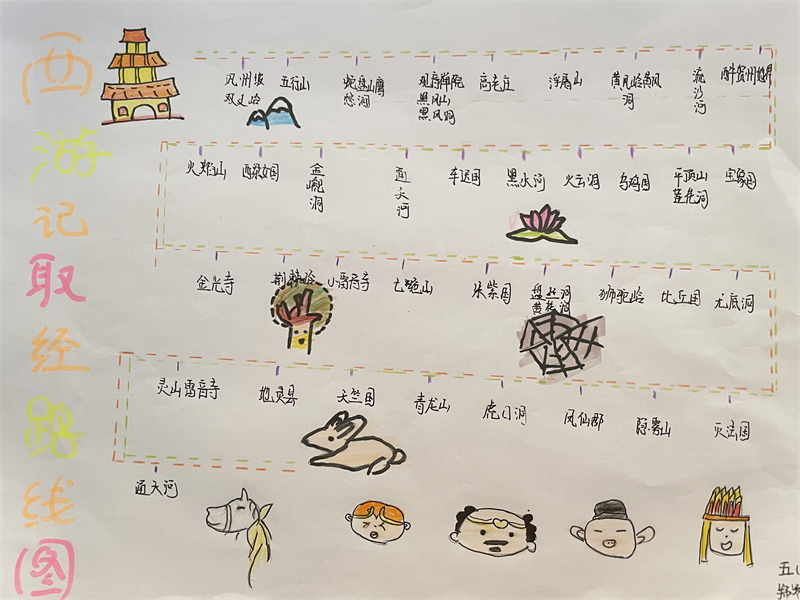 西游记取经路线图
双叉岭
五行山
蛇盘山鹰
愁涧
观音禅院
黑风山
黑风洞
高老庄
浮屠山
黄风岭黄风
洞
流沙河
西牛贺州地界
火焰山
西梁女国
通天河
车迟国
黑水河
火云洞
乌鸡国
平顶山
莲花洞
宝象国
金光寺
荆棘岭
小雷音寺
七绝山
朱紫国
盘丝洞
狮驼岭
比丘国
无底洞
灵山雷音寺
地灵县
天竺国
青龙山
虎口洞
凤仙郡
隐雾山
灭法国
通天河
五(